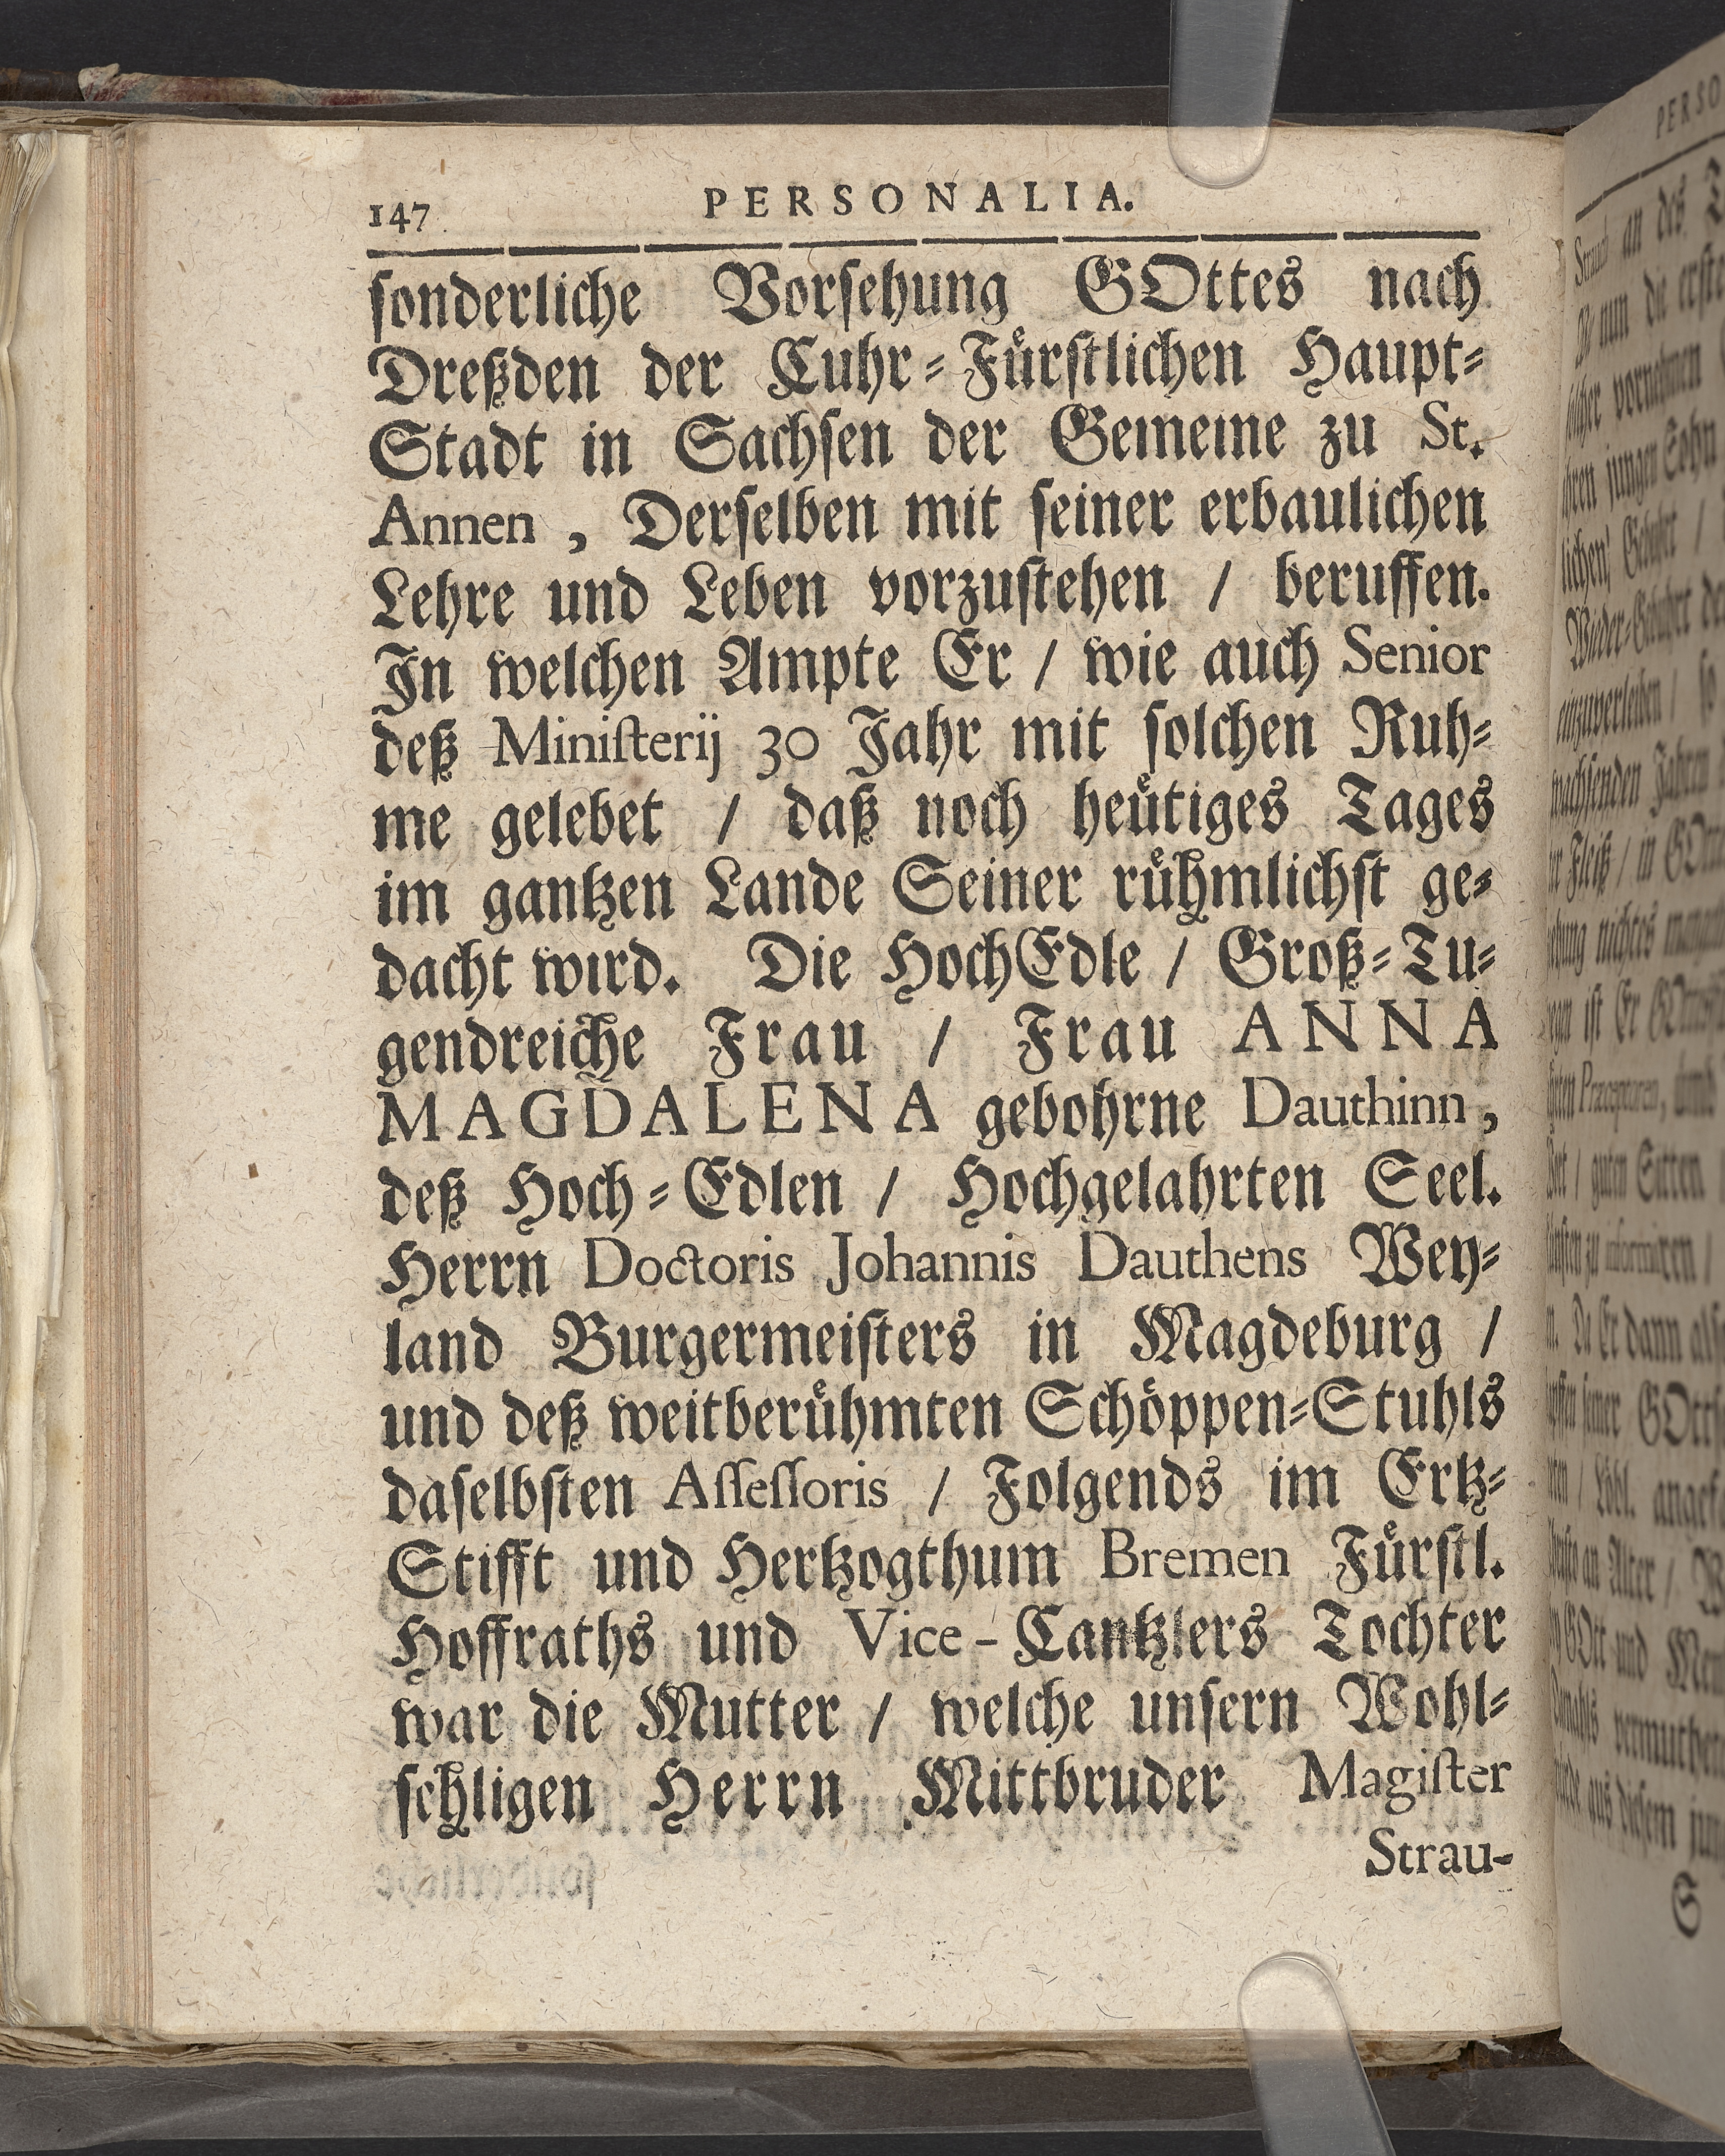 147 PERSONALIA.
ſonderliche Vorſehung GOttes nach
Dreßden der Cuhr-Fuͤrſtlichen Haupt-
Stadt in Sachſen der Gemeine zu St.
Annen, Derſelben mit ſeiner erbaulichen
Lehre und Leben vorzuſtehen / beruffen.
In welchen Ampte Er / wie auch Senior
deß Miniſterij 30 Jahr mit ſolchen Ruh-
me gelebet / daß noch heuͤtiges Tages
im gantzen Lande Seiner ruͤhmlichſt ge-
dacht wird. Die HochEdle / Groß-Tu-
gendreiche Frau / Frau ANNA
MAGDALENA gebohrne Dauthinn,
deß Hoch-Edlen / Hochgelahrten Seel.
Herrn Doctoris Johannis Dauthens Wey-
land Burgermeiſters in Magdeburg /
und deß weitberuͤhmten Schoͤppen-Stuhls
daſelbſten Aſſeſſoris / Folgends im Ertz-
Stifft und Hertzogthum Bremen Fuͤrſtl.
Hoffraths und Vice-Cantzlers Tochter
war die Mutter / welche unſern Wohl-
ſehligen Herrn Mittbruder Magiſter
Strau-
PERSO
an des
nun die erſte
vornehmen
jungen Sohn
/ in GOtt
iſt Er
/ guten Sitten
Er dann
ſeiner
/ Loͤbl.
an Alter /
GOtt und
aus dieſem
S